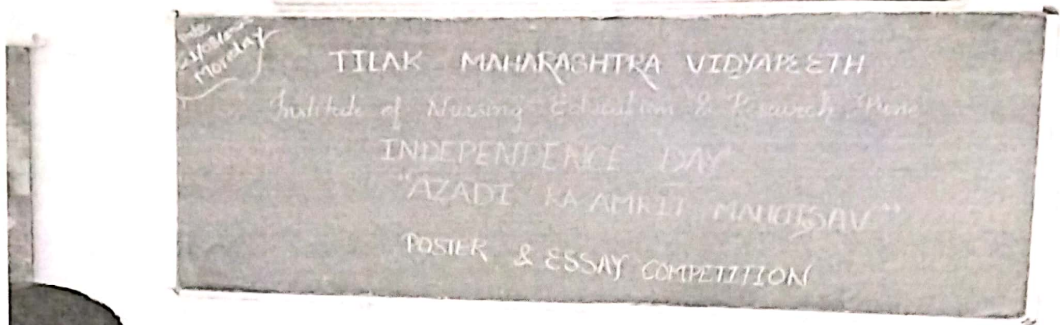 Monday
TILAK MAHARASHTRA VIDYAPEETH
Institute of Nursing Education & Research Pune
INDEPENDENCE DAY
"AZADI KA AMRIT MAHOTSAV"
POSTER & ESSAY COMPETITION